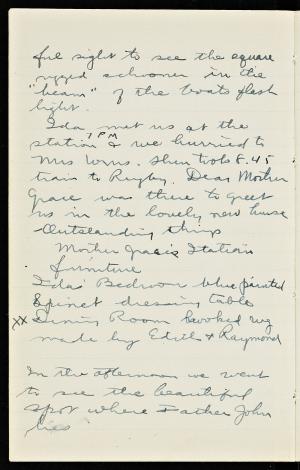 ful sight to see the square
rigged schooner in the
"beam" of the boats flash
light.
Ida met us at the
7 PM
station & we hurried to
Mrs Wms. Then took 8.45
train to Rugby. Dear Mother
Grace was there to greet
us in the lovely new house
Outstanding things
Mother Gracie Station
furniture
Ida' Bedroom blue painted
Spinet dressing table
xx Dining Room hooked rug
made by Edith & Raymond
In the afternoon we went
to see the beautiful
spot where Father John
lies